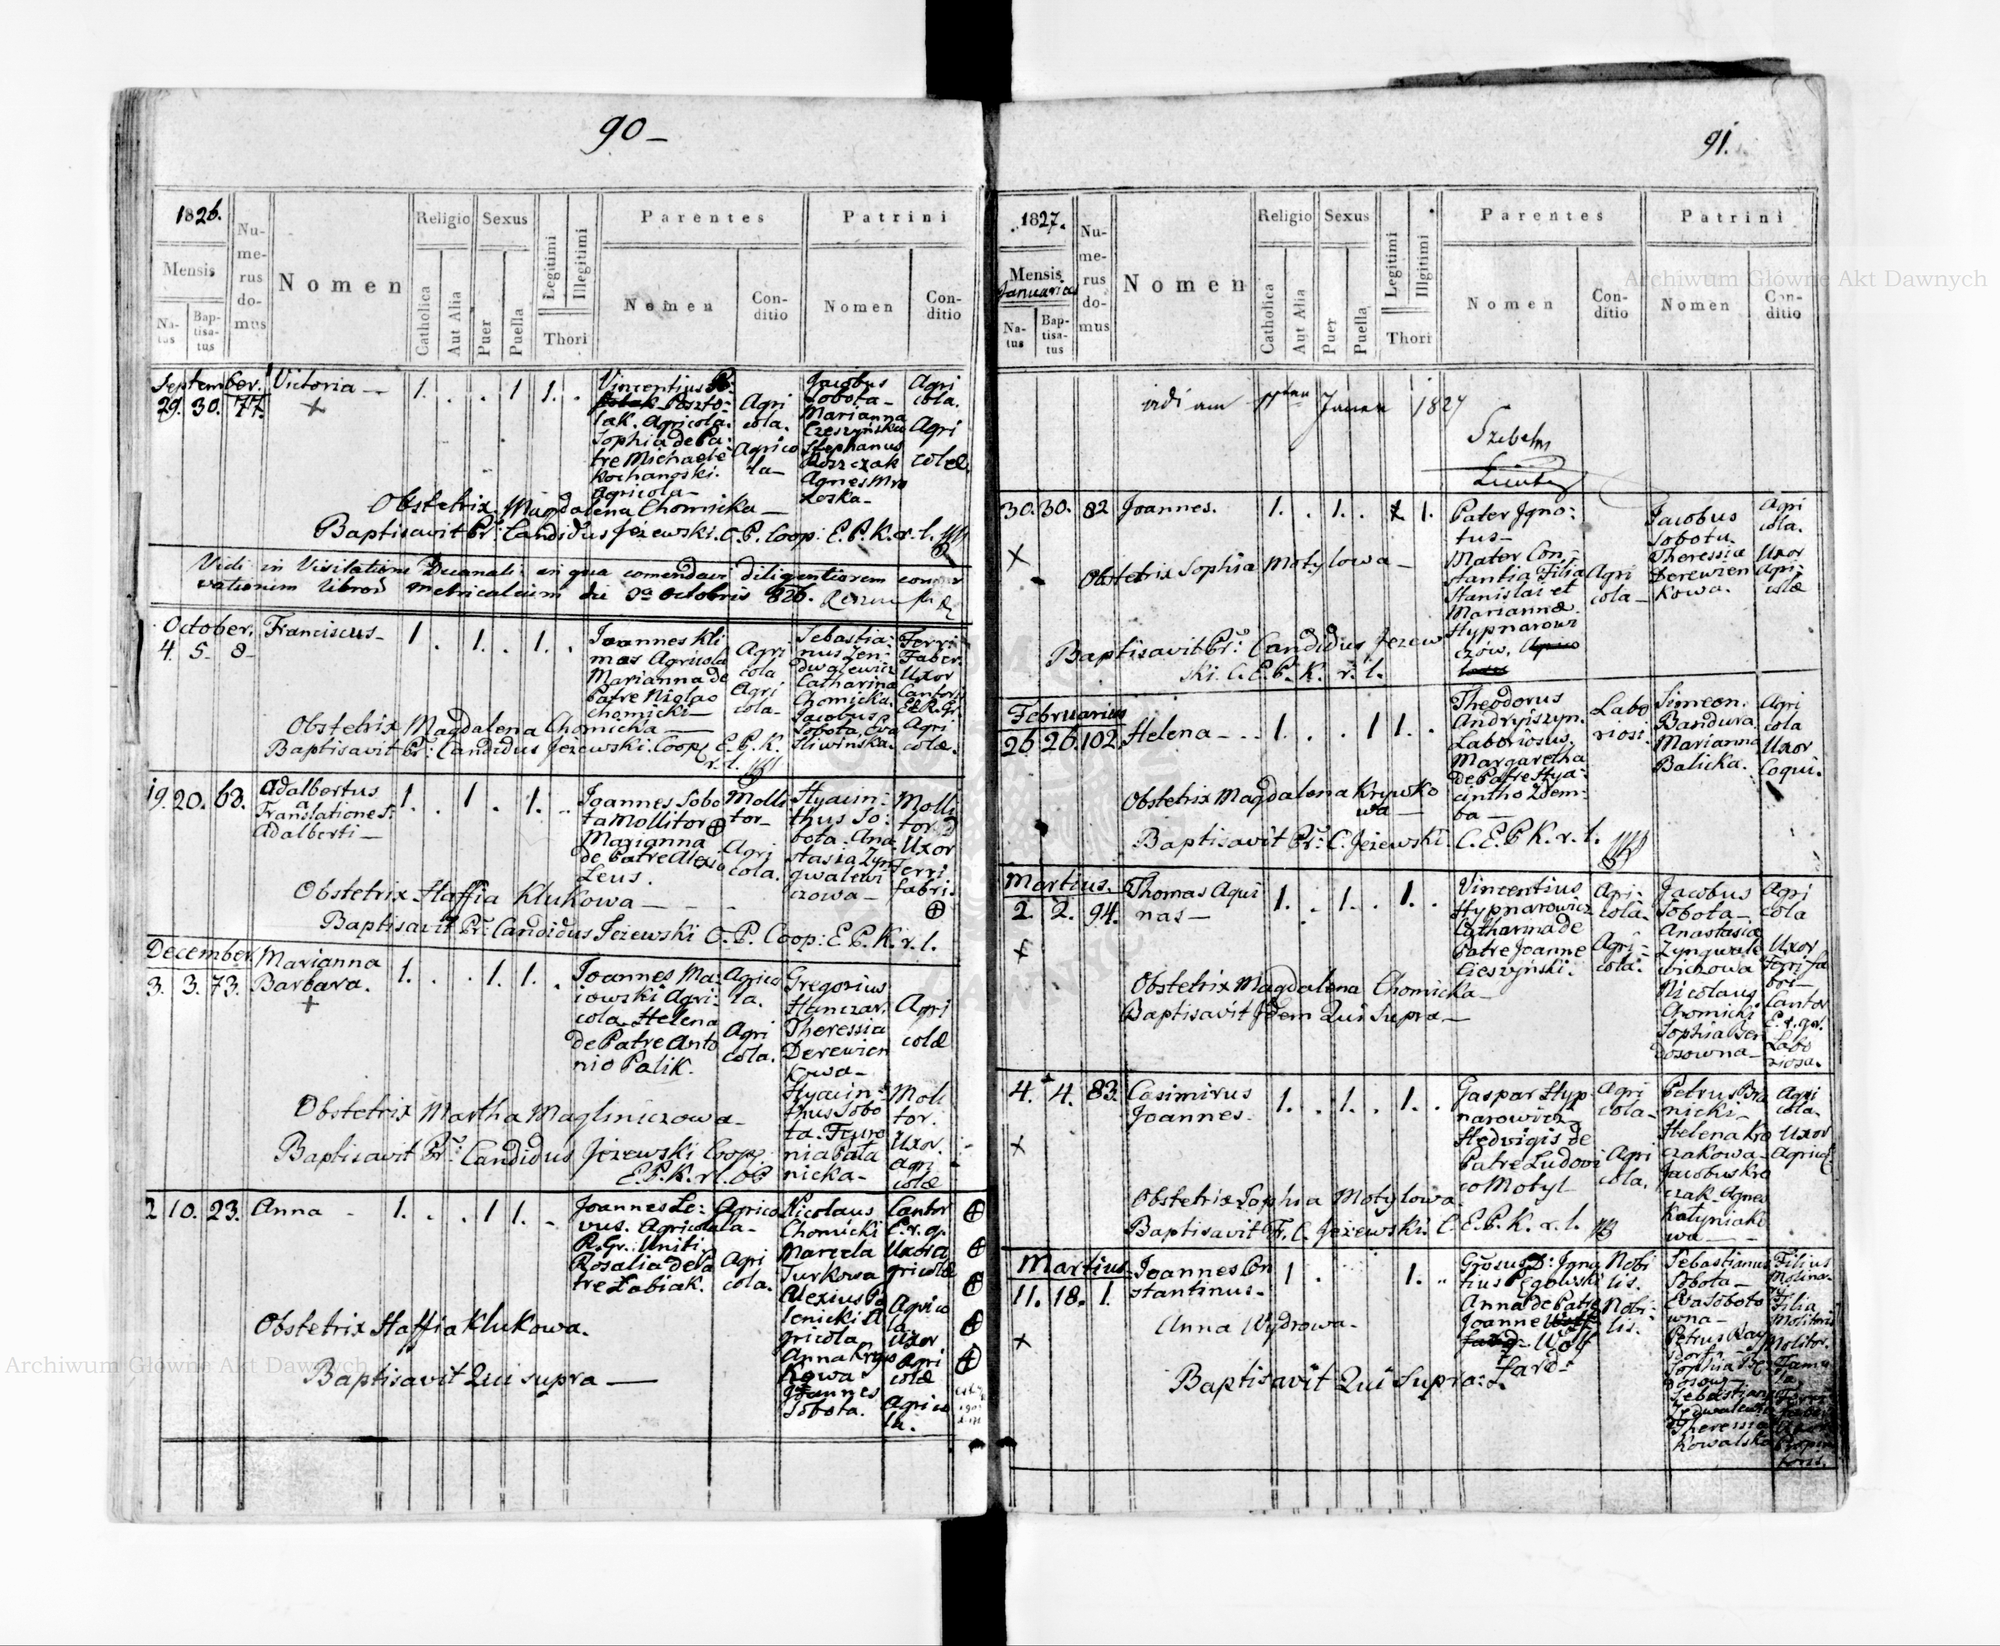 90
1826.
Mensis
Na-
tus
Bap-
tisa-
tus
Nu-
me-
rus
do-
mus
Nomen
Religio
Catholica
Aut Alia
Sexus
Puer
Puella
Legitimi
Illegitimi
Thori
Parentes
Nomen
Con-
ditio
Patrini
Nomen
Con-
ditio
September.
29. 30. 77.
Victoria
1. 1 1.
Vincentius
Poszto-
lak. Agricola.
Sophia de Pa-
tre Michaele
Kochanoski.
Agricola
Agri
cola.
Agrico
la
Jacobus
Sobota
Marianna
Czeszyńska
Stephanus
Roszczak
Agnes Mro
zoska
Agri
cola.
Agri
colæ.
Obstetrix Magdalena Chomicka
Baptisavit Pr: Candidus Jeżewski. O.P. Coop: E.P.K.r.l.
Vidi in Visitatione Decanali in qua comendavi diligentiorem conser
vationem librorum metricalium die octobris 826.
October.
4. 5. 8
Franciscus
1. 1. 1.
Joannes Kli
mas Agricola
Marianna de
Patre Niclao
Chomicki
Agri
cola
Agri
cola
Sebastia-
nus Zen-
dwalewicz
Catharina
Chomicka.
Jacobus
Sobota, Eva
Sliwińska.
Ferri
Faber.
Uxor
Cantoris
E.R.Gr.
Agri
colæ.
Obstetrix Magdalena Chomicka
Baptisavit Pr: Candidus Jeżewski. Coop. E.P.K.
r.l.
19. 20. 63.
Adalbertus
a
Translatione S.
Adalberti
1. 1. 1.
Joannes Sobo
ta Mollitor
Marianna
de Patre Alexio
Leus.
Molli
tor
Agri
cola.
Hyacin-
thus So-
bota. Ana
stasia Zyn
gwalewi
czowa
Molli
tor.
Uxor
Ferri
fabri.
Obstetrix Haffia Klukowa
Baptisavit Pr: Candidus Jeżewski O.P. Coop: E.P.K.r.l.
December
3. 3. 73.
Marianna
Barbara.
1. 1. 1.
Joannes Ma-
iowski Agri-
cola. Helena
de Patre Anto
nio Palik.
Agrico
la.
Agri
cola.
Gregorius
Hanczar.
Theressia
Derewien
kowa
Hyacin-
thus Sobo
ta.
nicka
Agri
colæ
Moli
tor.
Uxor.
agri
colæ
Obstetrix Martha Magliniczowa
Baptisavit Pr: Candidus Jeżewski Coop.
E.P.K.r.l. OP
2 10. 23.
Anna
1. 1 1.
Joannes Le-
vus. Agricola
R.Gr. Uniti
Rosalia de Pa
tre Łabiak.
Agrico
la
Agri
cola.
Nicolaus
Chomicki
Marcela
Turkowa
Alexius Pa
senicki A
gricola
Anna Kryw
kowa
Joannes
Sobota.
Cantor
E.r.g.
Uxor a
gricolæ
Agrico
la.
Uxor
Agri
colæ
Agrico
la.
Obstetrix Haffia Klukowa.
Baptisavit Qui supra
91.
1827.
Mensis
Januarius
Na-
tus
Bap-
tisa-
tus
Nu-
me-
rus
do-
mus
Nomen
Religio
Catholica
Aut Alia
Sexus
Puer
Puella
Legitimi
Illegitimi
Thori
Parentes
Nomen
Con-
ditio
Patrini
Nomen
Con-
ditio
vidi am 1827
30. 30. 82
Joannes.
1. 1. 1.
Pater Jgno-
tus
Mater Con-
stantia Filia
Stanislai et
Mariannæ
Hypnarowi
czów.
Agri
cola
Jacobus
Sobota
Theressia
Derewien
kowa.
Agri
cola.
Uxor
Agri-
colæ
Obstetrix Sophia Motylowa
Baptisavit Pr: Candidus Jeżew
ski C.E.P.K.r.l.
Februarius
26 26. 102.
Helena
1. 1 1.
Theodorus
Andryiszyn.
Laboriosus.
Margaretha
de Patre Hya
cintho Dem-
ba
Labo
riosi
Simeon.
Bandura.
Marianna
Balicka.
Agri
cola
Uxor
Coqui.
Obstetrix Magdalena Krywko
wa
Baptisavit Pr: C. Jeżewski. C.E.P.K.r.l.
Martius.
2 2. 94.
Thomas Aqui
nas
1. 1. 1.
Vincentius
Hypnarowicz
Catharina de
Patre Joanne
Cieszyński.
Agri-
cola.
Agri-
cola.
Jacobus
Sobota
Anastasia
Zyngwale
wiczowa
Nicolaus
Chomicki
Sophia Ben
dosowna
Agri
cola
Uxor
Ferri fa
bri
Cantor
E.r.gr.
Labo
riosa.
Obstetrix Magdalena Chomicka
Baptisavit Jdem Qui supra
4. 4. 83.
Casimirus
Joannes.
1. 1. 1.
Gaspar Hyp
narowicz
Hedvigis de
Patre Ludovi
co Motyl
Agri
cola
Agri
cola.
Petrus Bra
nicki
Helena Kro
czakowa
Jacobus Kro
czak Agnes
Katyniako
wa
Agri
cola
Uxor
Agricol
Obstetrix Sophia Motylowa
Baptisavit Fr. C. Jeżewski. C.E.P.K.r.l.
Martius
11. 18. 1.
Joannes Con
stantinus
1 1.
Grosus D: Jgna
tius Pęgowski
Anna de Patre
Joanne
Wolf
fard
Nobi
lis.
Nobi-
lis.
Sebastianus
Sobota
Eva Soboto
wna
Petrus Kay
dorf
Sophia Ben
dosow
Sebastianus
Theressia
Kowalska
Filius
Molitor
Filia
Molitoris
Molitor.
Famu
la
Propina
toris.
Anna Wydrowa
Baptisavit Qui supra
Archiwum Główne Akt Dawnych
Archiwum Główne Akt Dawnych